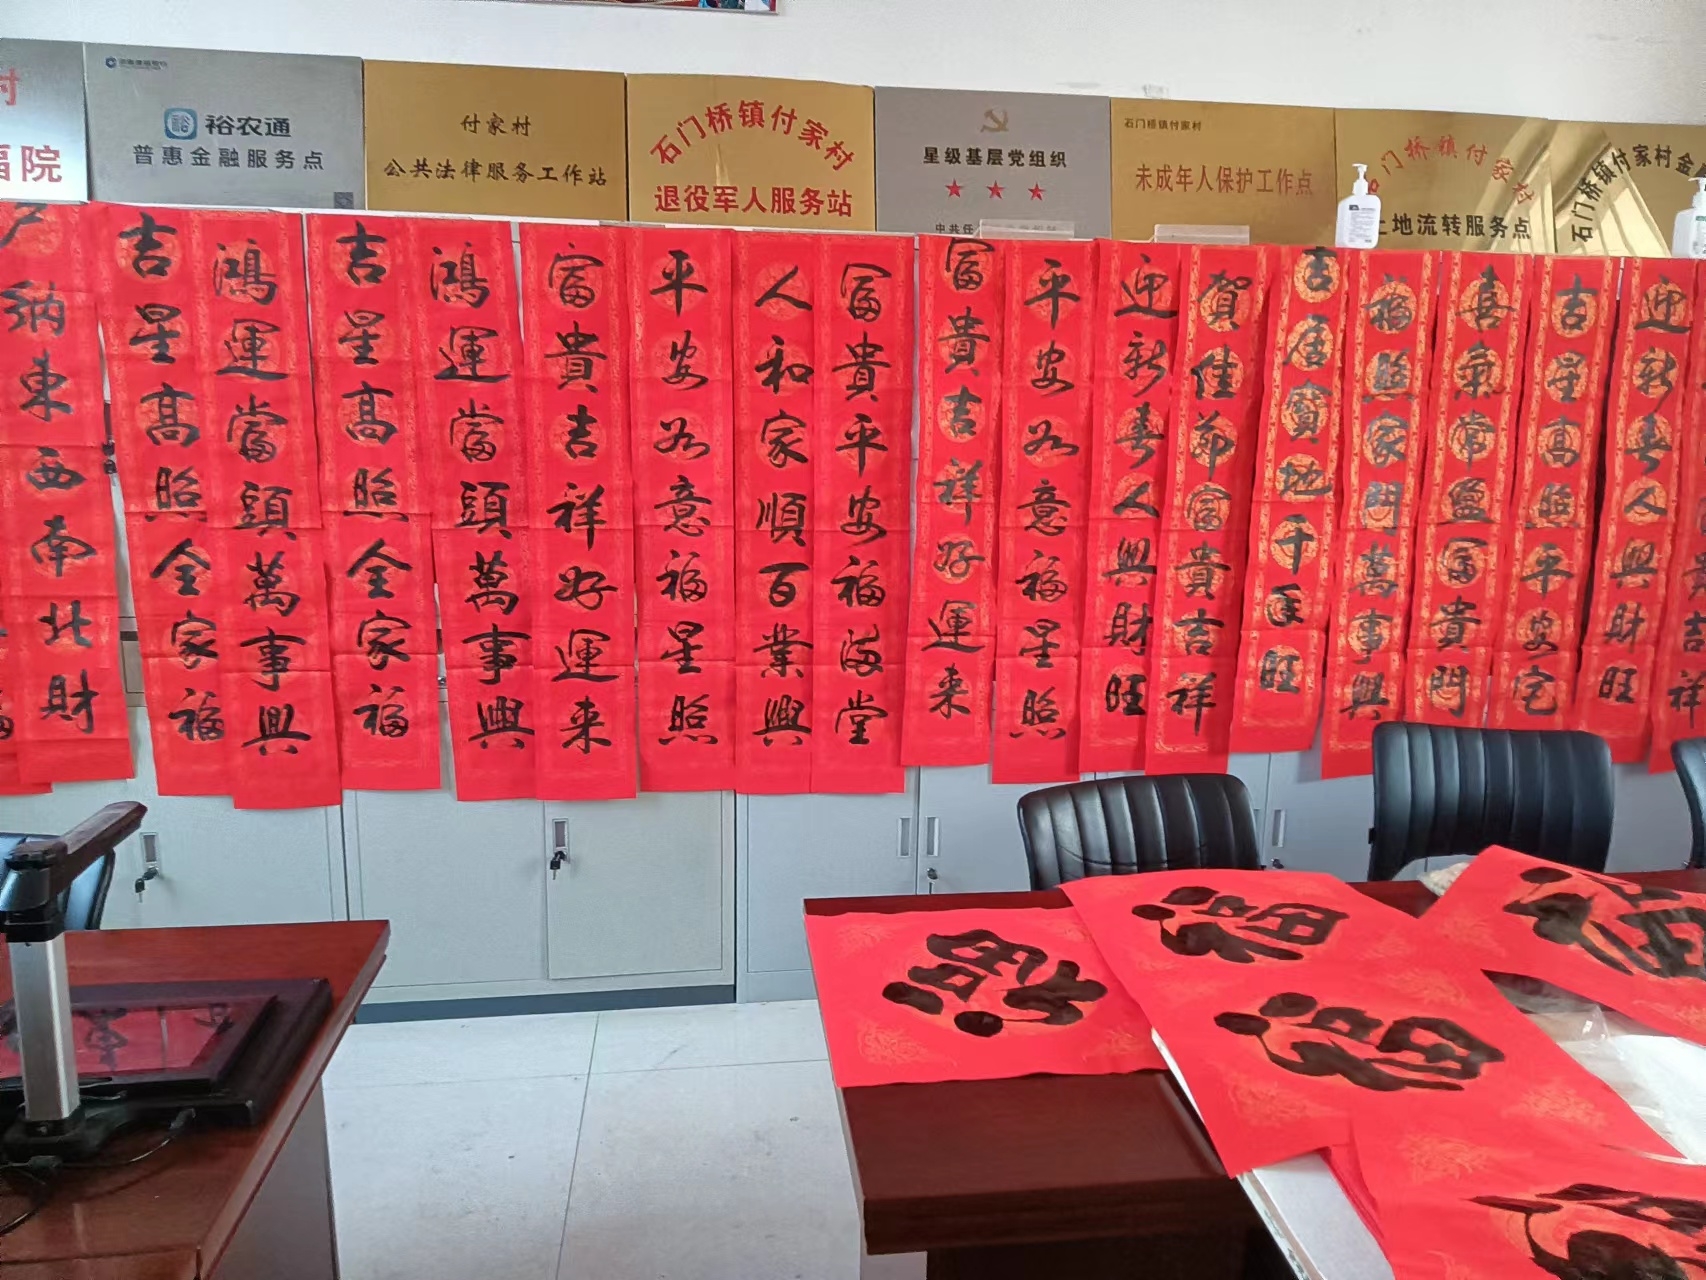 村
福院
裕农通
普惠金融服务点
付家村
公共法律服务工作站
石门桥镇付家村
退役军人服务站
星级基层党组织
石门桥镇付家村
未成年人保护工作点
石门桥镇付家村
土地流转服务点
石门桥镇付家村金
户纳東西南北財
吉星高照全家福
鴻運當頭萬事興
吉星高照全家福
鴻運當頭萬事興
富貴吉祥好運来
平安如意福星照
人和家順百業興
富貴平安福滿堂
富貴吉祥好運来
平安如意福星照
迎新春人興財旺
賀佳節富貴吉祥
吉居寶地千年旺
福照家門萬事興
喜氣常盈富貴門
吉星高照平安宅
迎新春人興財旺
貴吉祥
福
福
福
福